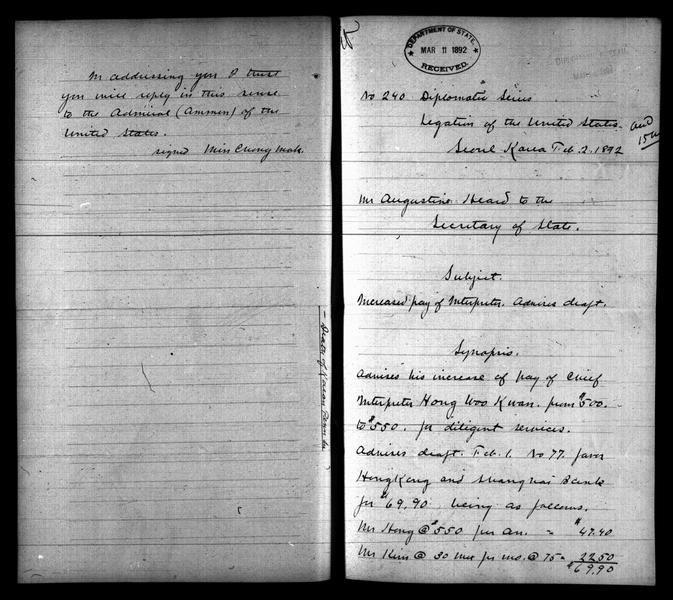 In addressing you I trust
you will reply in this sense
to the Admiral (Ammen) of the
United States.
signed Min Chong Mok.
DEPARTMENT OF STATE.
MAR 11 1892
RECEIVED.
No 240 Diplomatic Series
Legation of the United States.
Seoul Korea Feb. 2. 1892
and
Mr Augustine Heard to the
Secretary of State.
Subject.
Increased pay of Interpreter. Advises draft.
Synopsis.
Advises his increase of pay of Chief
Interpreter Hong Woo Kwan. from $500.
to $550. for diligent services.
Advises draft. Feb. 1. No 77. favor
HongKong and Shanghai Bank
for $69.90, being as follows.
Mr Hong @ $550 per An. = $47.40
Mr Kim @ 30 Mex pr mo. @ 75 = 22.50
$69.90